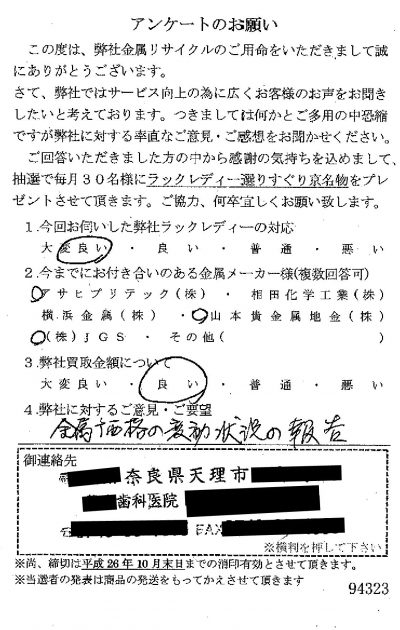 アンケートのお願い
この度は、弊社金属リサイクルのご用命をいただきまして誠
にありがとうございます。
さて、弊社ではサービス向上の為に広くお客様のお声をお聞き
したいと考えております。つきましては何かとご多用の中恐縮
ですが弊社に対する率直なご意見・ご感想をお聞かせください。
ご回答いただきました方の中から感謝の気持ちを込めまして、
抽選で毎月30名様にラックレディー選りすぐり京名物をプレ
ゼントさせて頂きます。ご協力、何卒宜しくお願い致します。
1.今回お伺いした弊社ラックレディーの対応
大変良い ・ 良い ・ 普通 ・ 悪い
2.今までにお付き合いのある金属メーカー様(複数回答可)
アサヒプリテック(株) ・ 相田化学工業(株)
横浜金属(株) ・ 山本貴金属地金(株)
(株)JGS ・ その他( )
3.弊社買取金額について
大変良い ・ 良い ・ 普通 ・ 悪い
4.弊社に対するご意見・ご要望
金属価格の変動状況の報告
御連絡先
奈良県天理市
歯科医院
FAX
※横判を押して下さい
※尚、締切は平成26年10月末日までの消印有効とさせて頂きます。
※当選者の発表は商品の発送をもってかえさせて頂きます
94323